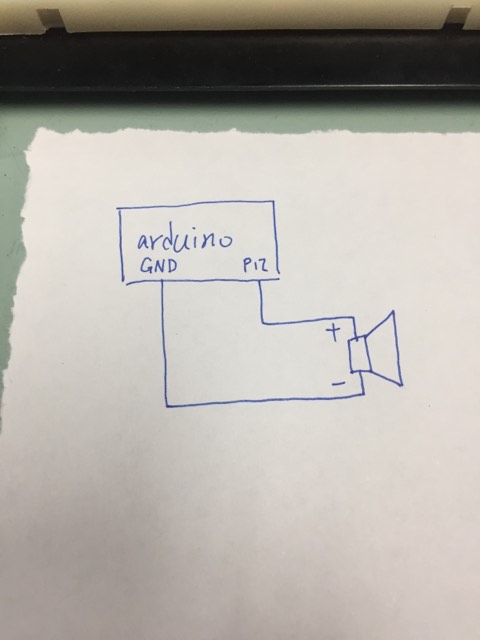 arduino
GND P12
+
-